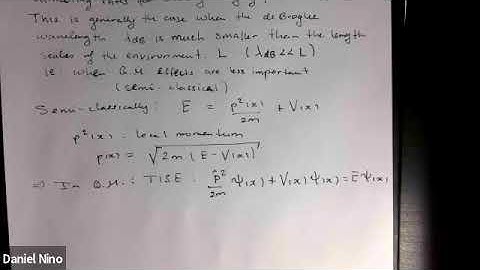 This is generally the case when the deBroglie
wavelength λdB is much smaller than the length
scales of the environment: L (λdB << L)
ie: when Q.M effects are less important
(semi-classical)
Semi-classically: E = p²(x)/2m + V(x)
p²(x) = local momentum
p(x) = √2m(E - V(x))
⇒ In Q.M.: TISE: p̂²/2m ψ(x) + V(x) ψ(x) = E ψ(x)
Daniel Nino